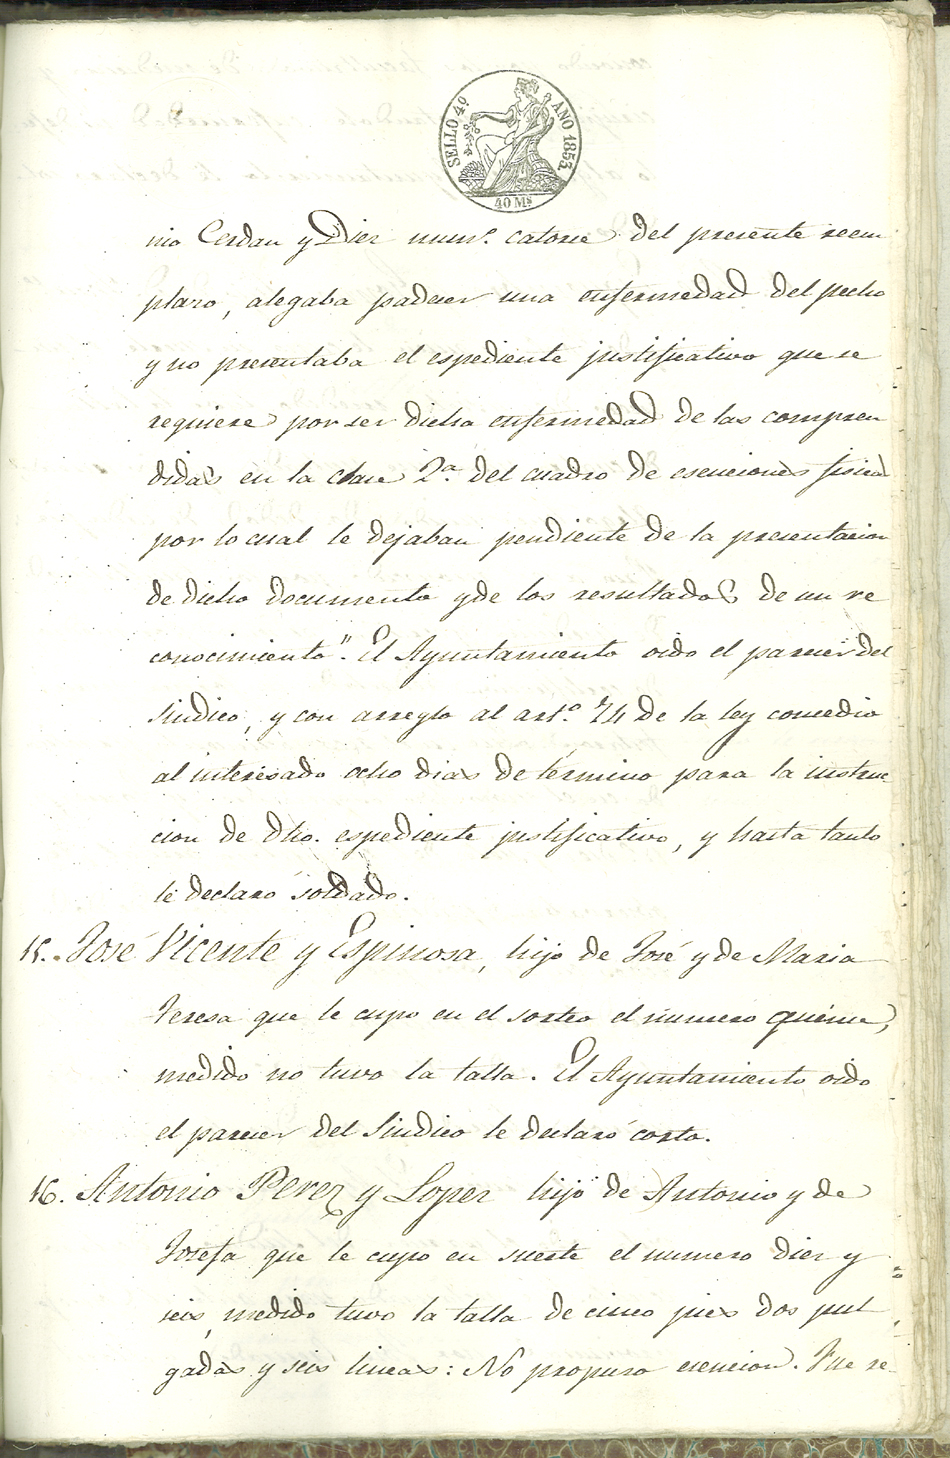 SELLO 4º AÑO 1853.
40 Ms
nio Cerdan y Dier numº. catorce del presente reem
plazo, alegaba padecer una enfermedad del pecho
y no presentaba el espediente justificativo que se
requiere por ser dicha enfermedad de las compren
didas en la clase 2ª. del cuadro de esenciones fisicas
por lo cual le dejaban pendiente de la presentacion
de dicho documento y de los resultados de un re
conocimiento". El Ayuntamiento oido el parecer del
Sindico, y con arreglo al artº. 74 de la ley concedio
al interesado ocho dias de término para la instruc
cion de dho. espediente justificativo, y hasta tanto
le declaró soldado.
15. José Vicente y Espinosa, hijo de José y de Maria
Teresa que le cupo en el sorteo el numero quince,
medido no tuvo la talla. El Ayuntamiento oido
el parecer del Sindico le declaró corto.
16. Antonio Perez y Lopez hijo de Antonio y de
Josefa que le cupo en suerte el numero diez y
seis, medido tuvo la talla de cinco pies dos pul
gadas y seis lineas: No propuso esencion. Fue re-